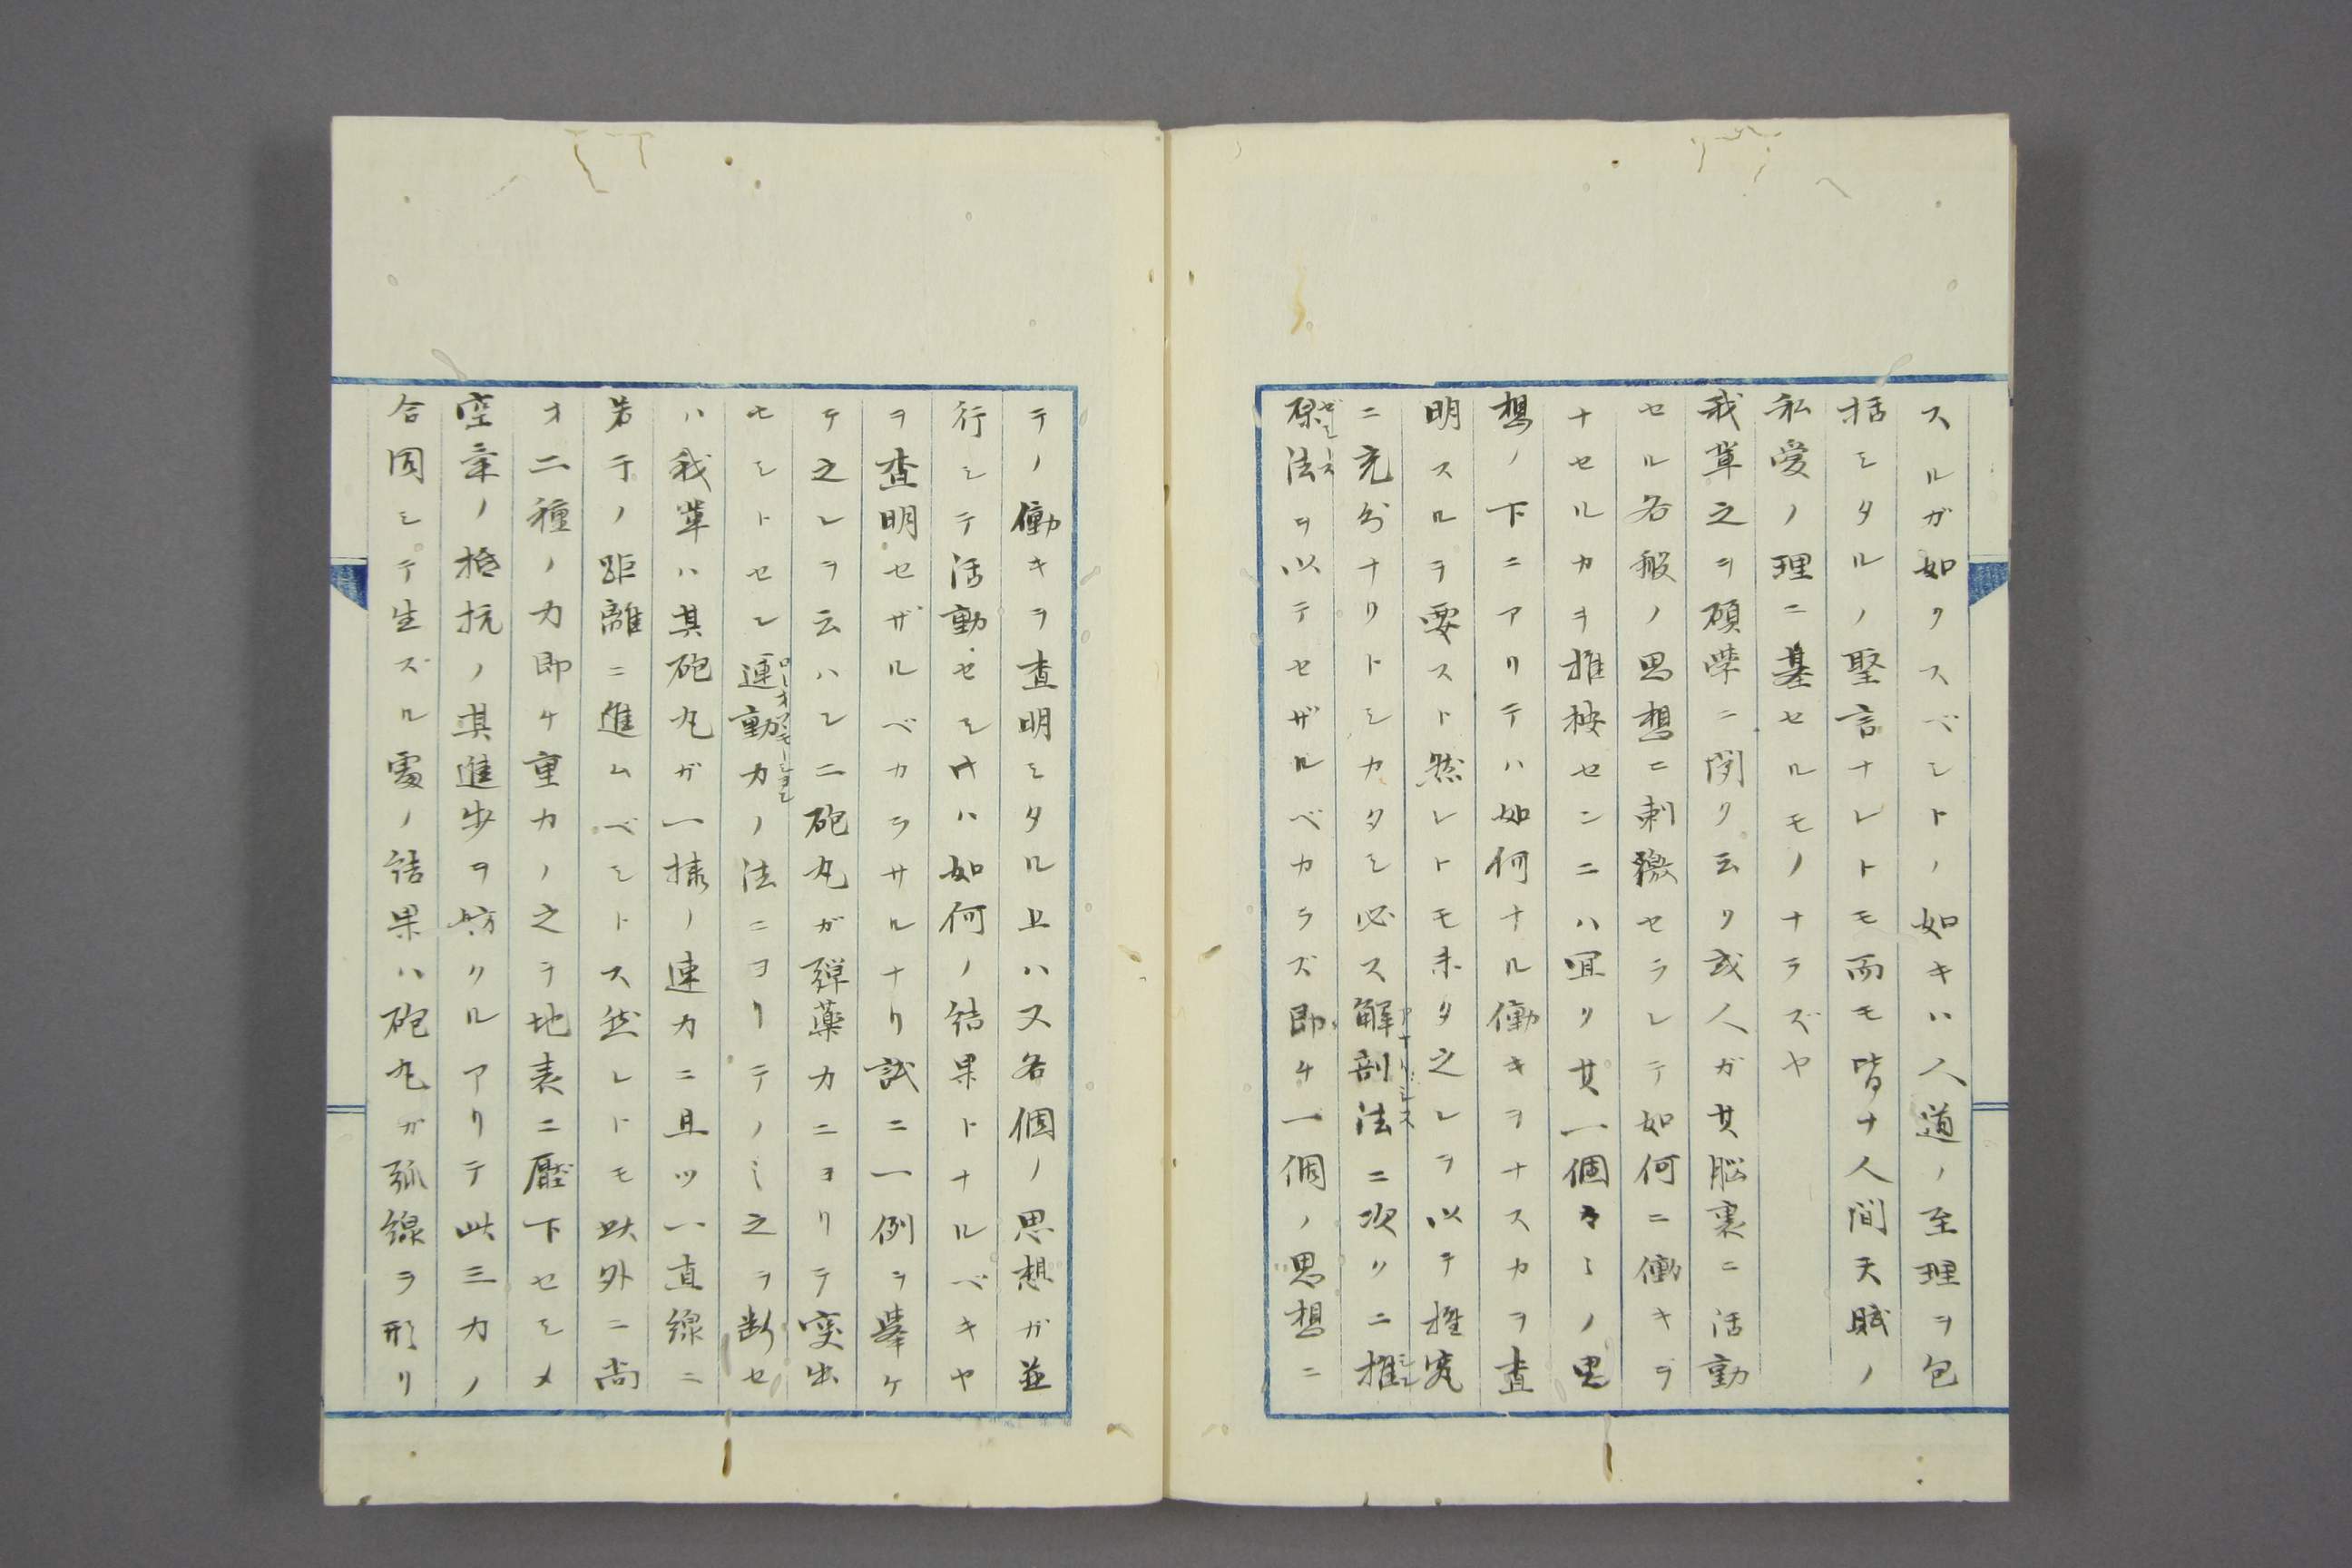 スルガ如クスベシトノ如キハ人道ノ至理ヲ包
括シタルノ聖言ナレトモ而モ皆ナ人間天賦ノ
私愛ノ理ニ基セルモノナラズヤ
我輩之ヲ碩学ニ聞ク云ク或人ガ其脳裏ニ活動
セル各般ノ思想ニ刺激セラレテ如何ニ働キヲ
ナセルカヲ推按センニハ宜ク其一個々々ノ思
想ノ下ニアリテハ如何ナル働キヲナスカヲ査
明スルヲ要スト然レトモ未タ之レヲ以テ推究
ニ充分ナリトシカタシ必ス解剖法ニ次クニ推
法ヲ以テセザルベカラズ即チ一個ノ思想ニ
テノ働キヲ査明シタル上ハ又各個ノ思想ガ並
行シテ活動セシ𪜈ハ如何ノ結果トナルベキヤ
ヲ査明セザルベカラサルナリ試ニ一例ヲ挙ケ
テ之レヲ云ハンニ砲丸ガ弾薬力ニヨリテ突出
セシトセン運動力ノ法ニヨリテノミ之ヲ断セ
ハ我輩ハ其砲丸ガ一様ノ速力ニ且ツ一直線ニ
若干ノ距離ニ進ムベシトス然レドモ此外ニ尚
オ二種ノ力即チ重力ノ之ヲ地表ニ壓下セシメ
空気ノ抵抗ノ其進歩ヲ妨クルアリテ此三力ノ
合同シテ生ズル處ノ結果ハ砲丸ガ弧線ヲ形リ